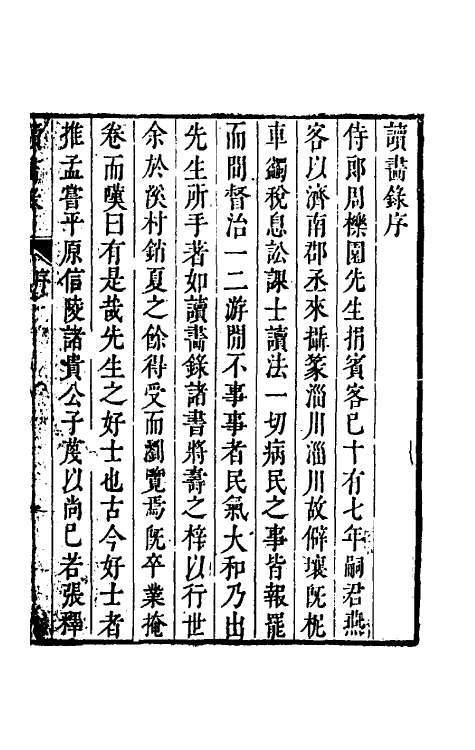 讀畵錄序
侍郎周櫟園先生捐賓客巳十有七年嗣君燕
客以濟南郡丞來攝篆淄川淄川故僻壤旣柅
車蠲稅息訟課士讀法一切病民之事皆報罷
而間督治一二游閒不事事者民氣大和乃出
先生所手著如讀畵錄諸書將壽之梓以行世
余於溪村銷夏之餘得受而瀏覽焉旣卒業掩
卷而嘆曰有是哉先生之好士也古今好士者
推孟嘗平原信陵諸貴公子蔑以尚巳若張釋
序